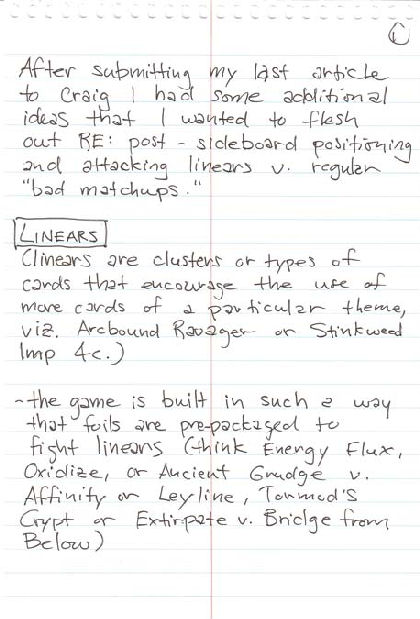 1
After submitting my last article
to Craig I had some additional
ideas that I wanted to flesh
out RE: post-sideboard positioning
and attacking linears v. regular
"bad matchups."
LINEARS
(linears are clusters or types of
cards that encourage the use of
more cards of a particular theme,
viz. Arcbound Ravager or Stinkweed
Imp &c.)
-the game is built in such a way
that foils are pre-packaged to
fight linears (think Energy Flux,
Oxidize, or Ancient Grudge v.
Affinity or Leyline, Tormod's
Crypt or Extirpate v. Bridge from
Below)